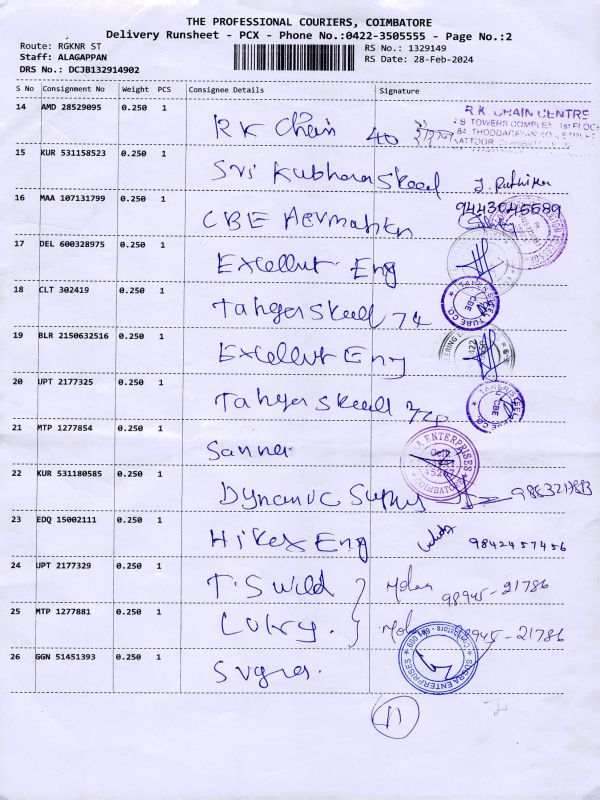 THE PROFESSIONAL COURIERS, COIMBATORE
Delivery Runsheet - PCX - Phone No.:0422-3505555 - Page No.:2
Route: RGKNR ST
Staff: ALAGAPPAN
DRS No.: DCJB132914902
*1329149*
RS No.: 1329149
RS Date: 28-Feb-2024
S No Consignment No Weight PCS Consignee Details Signature
14 AMD 28529095 0.250 1 RK Chain 40
R.K. CHAIN CENTRE
15 KUR 531158523 0.250 1 Sri Kubhara Skeed J. Rathika
16 MAA 107131799 0.250 1 CBE 9443045589
17 DEL 600328975 0.250 1 Excellent Eng
18 CLT 302419 0.250 1 Taher Steel 74
TUBE CO
CBE
19 BLR 2150632516 0.250 1 Excellent Eng
20 UPT 2177325 0.250 1 Taher Steel 74
CBE
21 MTP 1277854 0.250 1 Sanner
ENTERPRISES
COIMBATORE
22 KUR 531180585 0.250 1 Dynamic
23 EDQ 15002111 0.250 1 Hikex Eng 9842457456
24 UPT 2177329 0.250 1 T.S Weld Mohan 98945-21786
25 MTP 1277881 0.250 1 Mohan 98945-21786
26 GGN 51451393 0.250 1 Sugra.
SUGRA ENTERPRISES
Coimbatore - 641 009
11